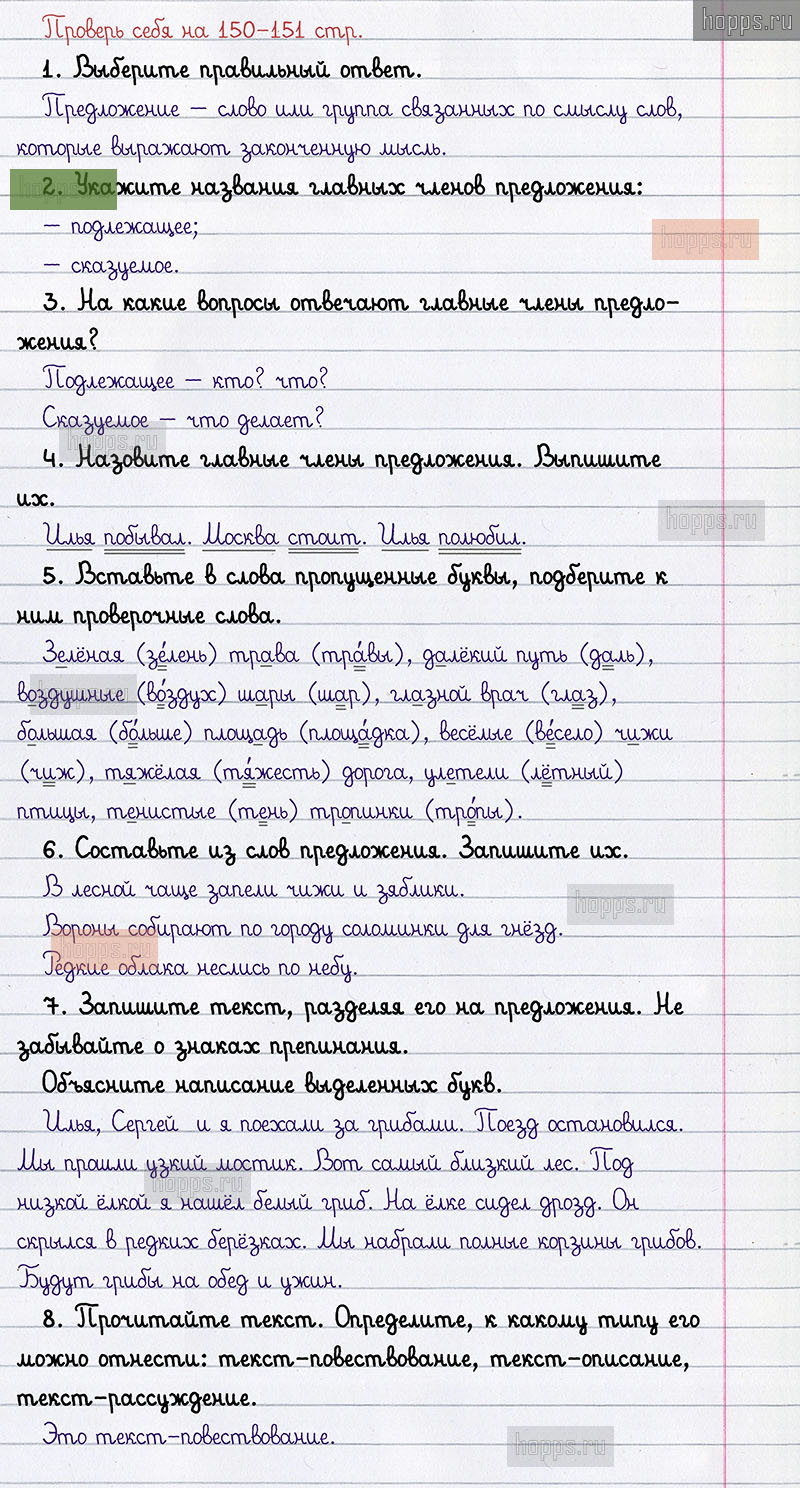 hopps.ru
Проверь себя на 150-151 стр.
1. Выберите правильный ответ.
Предложение – слово или группа связанных по смыслу слов,
которые выражают законченную мысль.
hopps.ru
2. Укажите названия главных членов предложения:
– подлежащее;
hopps.ru
– сказуемое.
3. На какие вопросы отвечают главные члены предло-
жения?
Подлежащее – кто? что?
Сказуемое – что делает?
hopps.ru
4. Назовите главные члены предложения. Выпишите
их.
hopps.ru
Илья побывал. Москва стоит. Илья полюбил.
5. Вставьте в слова пропущенные буквы, подберите к
ним проверочные слова.
Зелёная (зе́лень) трава (тра́вы), далёкий путь (даль),
hopps.ru
воздушные (во́здух) шары (шар), глазной врач (глаз),
большая (бо́льше) площадь (площа́дка), весёлые (ве́село) чижи
(чиж), тяжёлая (тя́жесть) дорога, улетели (лётный)
птицы, тенистые (тень) тропинки (тро́пы).
6. Составьте из слов предложения. Запишите их.
В лесной чаще запели чижи и зяблики.
hopps.ru
Вороны собирают по городу соломинки для гнёзд.
hopps.ru
Редкие облака неслись по небу.
7. Запишите текст, разделяя его на предложения. Не
забывайте о знаках препинания.
Объясните написание выделенных букв.
Илья, Сергей и я поехали за грибами. Поезд остановился.
Мы прошли узкий мостик. Вот самый близкий лес. Под
hopps.ru
низкой ёлкой я нашёл белый гриб. На ёлке сидел дрозд. Он
скрылся в редких берёзках. Мы набрали полные корзины грибов.
Будут грибы на обед и ужин.
8. Прочитайте текст. Определите, к какому типу его
можно отнести: текст-повествование, текст-описание,
текст-рассуждение.
Это текст-повествование.
hopps.ru